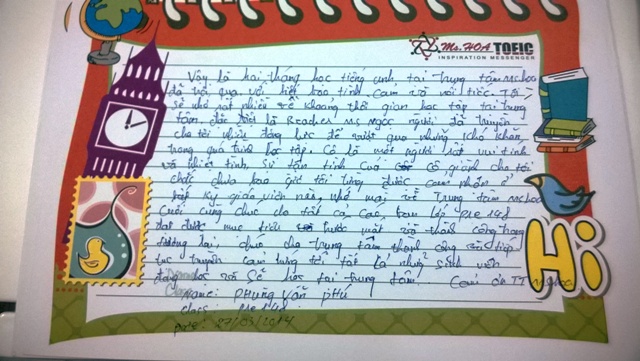 Ms. HOA TOEIC
INSPIRATION MESSENGER
Vậy là hai tháng học tiếng anh tại Trung tâm mshoa
đã trôi qua với biết bao tình cảm và nuối tiếc. Tôi
sẽ nhớ rất nhiều về khoảng thời gian học tập tại trung
tâm, đặc biệt là Ms Ngọc người đã truyền
cho tôi nhiều động lực để vượt qua những khó khăn
trong quá trình học tập. Cô là một người rất vui tính
và nhiệt tình, sự tận tình của cô giành cho tôi
chắc chưa bao giờ tôi từng được cảm nhận ở
bất kỳ giáo viên nào, nhớ mãi về Trung tâm mshoa
Cuối cùng chúc cho tất cả các bạn lớp pre 148
đạt được mục tiêu trước mắt và thành công trong
tương lai, chúc cho trung tâm thành công và tiếp
tục truyền cảm hứng tới tất cả những sinh viên
đang học và sẽ học tại trung tâm. Cảm ơn TT mshoa
name: PHÙNG VĂN PHÚ
class: pre 148
Date: 27/03/2014
Hi